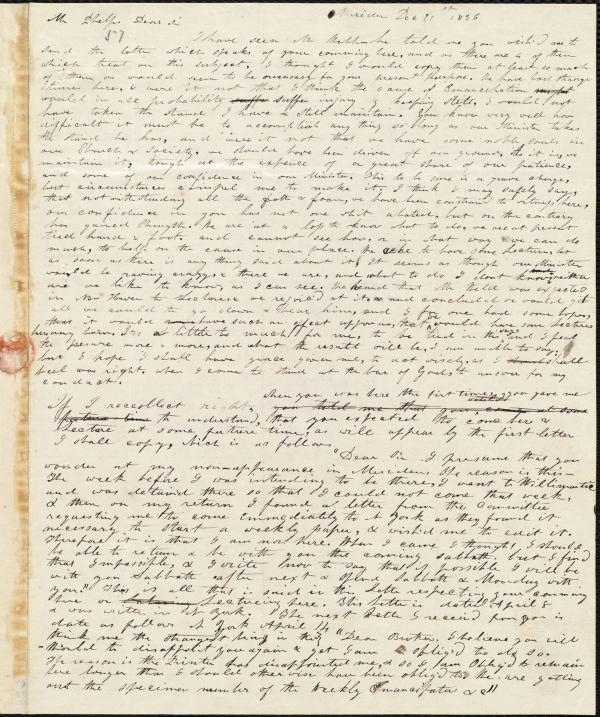 Meriden Dec 21st 1836
Mr Phelps, Dear Sir
57
I have seen Mr he told me you wish'd me to
send the letter which speaks of your comming here, and as there are 4 of them
which treat on this subject, I thought I would copy them at least so much
of them, as would seem to be necessary for your present purpose. We have lost strange
times here, & were it not that I think the cause of Emancipation might
would in all probability suffer suffer injury by keeping still, I would not
have taken the stand I have & still maintain. You know very well how
difficult it must be to accomplish any thing so long as our Minister takes
the stand he has, and were it not that we have some noble souls in
our Church & Society, we should have been driven off our ground, As it is, we
maintain it, though at the expence of a great share of our patience,
and some of our confidence in our Minister. This to be sure is a grave charge,
but circumstances compel me to make it, I think I may safely say,
that notwithstanding all the foam, we have been constrained to witness here,
our confidence in you has not one whit abated, but on the contrary
has gained strength. We are at a loss to know what to do, we are at present
tied hand & foot, and cannot see how, or in what way we can do
much, to help on the cause in our place. We like to have some Lectures, but
as soon as there is any thing said about it, it seems as though our Minister
would be raving crazy, & there we are, and what to do I dont know, neither
are we like to know, as I can see. We heard that Mr Weld was expected
in New Haven to Lecture & we rejoic'd at it, and concluded we would get
all we could to go down & hear him, and I for one had some hopes,
that it would have such an effect upon us, that we would have some Lectures
here, It is a little to much for me, to be tied in this way, and I feel
the pressure more & more, and what the results will be, I am unable to say,
but I hope I shall have grace given me, to act wisely, as I should shall
feel was right when I come to stand at the bar of God, to answer for my
conduct.
When you was here the first time, you gave me
If I recollect right, you told me that you
future time to understand, that you expected to come here &
Lecture at some future time, as will appear by the first letter
I shall copy, which is as follows
"Dear Sir. I presume that you
wonder at my nonappearance in Meriden. The reason is this—
The week before I was intending to be there, I went to Willimantic
and was detained there so that I could not come that week,
& then on my return I found a letter from the Committee
requesting me to come immediately to N York as they found it
necessary to start a weekly paper, & wish'd me to edit it.
Therefore it is that I am now here. When I came I thought I should
be able to return & be with you the coming sabbath, but I find
that Impossible, & I write now to say that if possible I will be
with you Sabbath after next & spend Sabbath & Monday with
you." This is all that is said in this letter respecting your comming
here or Lecturing here. This letter is dated April 8
& was written in N York. The next letter I receiv'd from you is
date as follows N York April 14 "Dear Brother, I believe you will
think me the strangest thing in the
World to disappoint you again & yet I am oblig'd to do so.
The reason is the Printer has disappointed me, & so I am Oblig'd to remain
here longer than I should otherwise have been oblig'd to. We are getting
out the specimen number of the Weekly Emancipator &c"